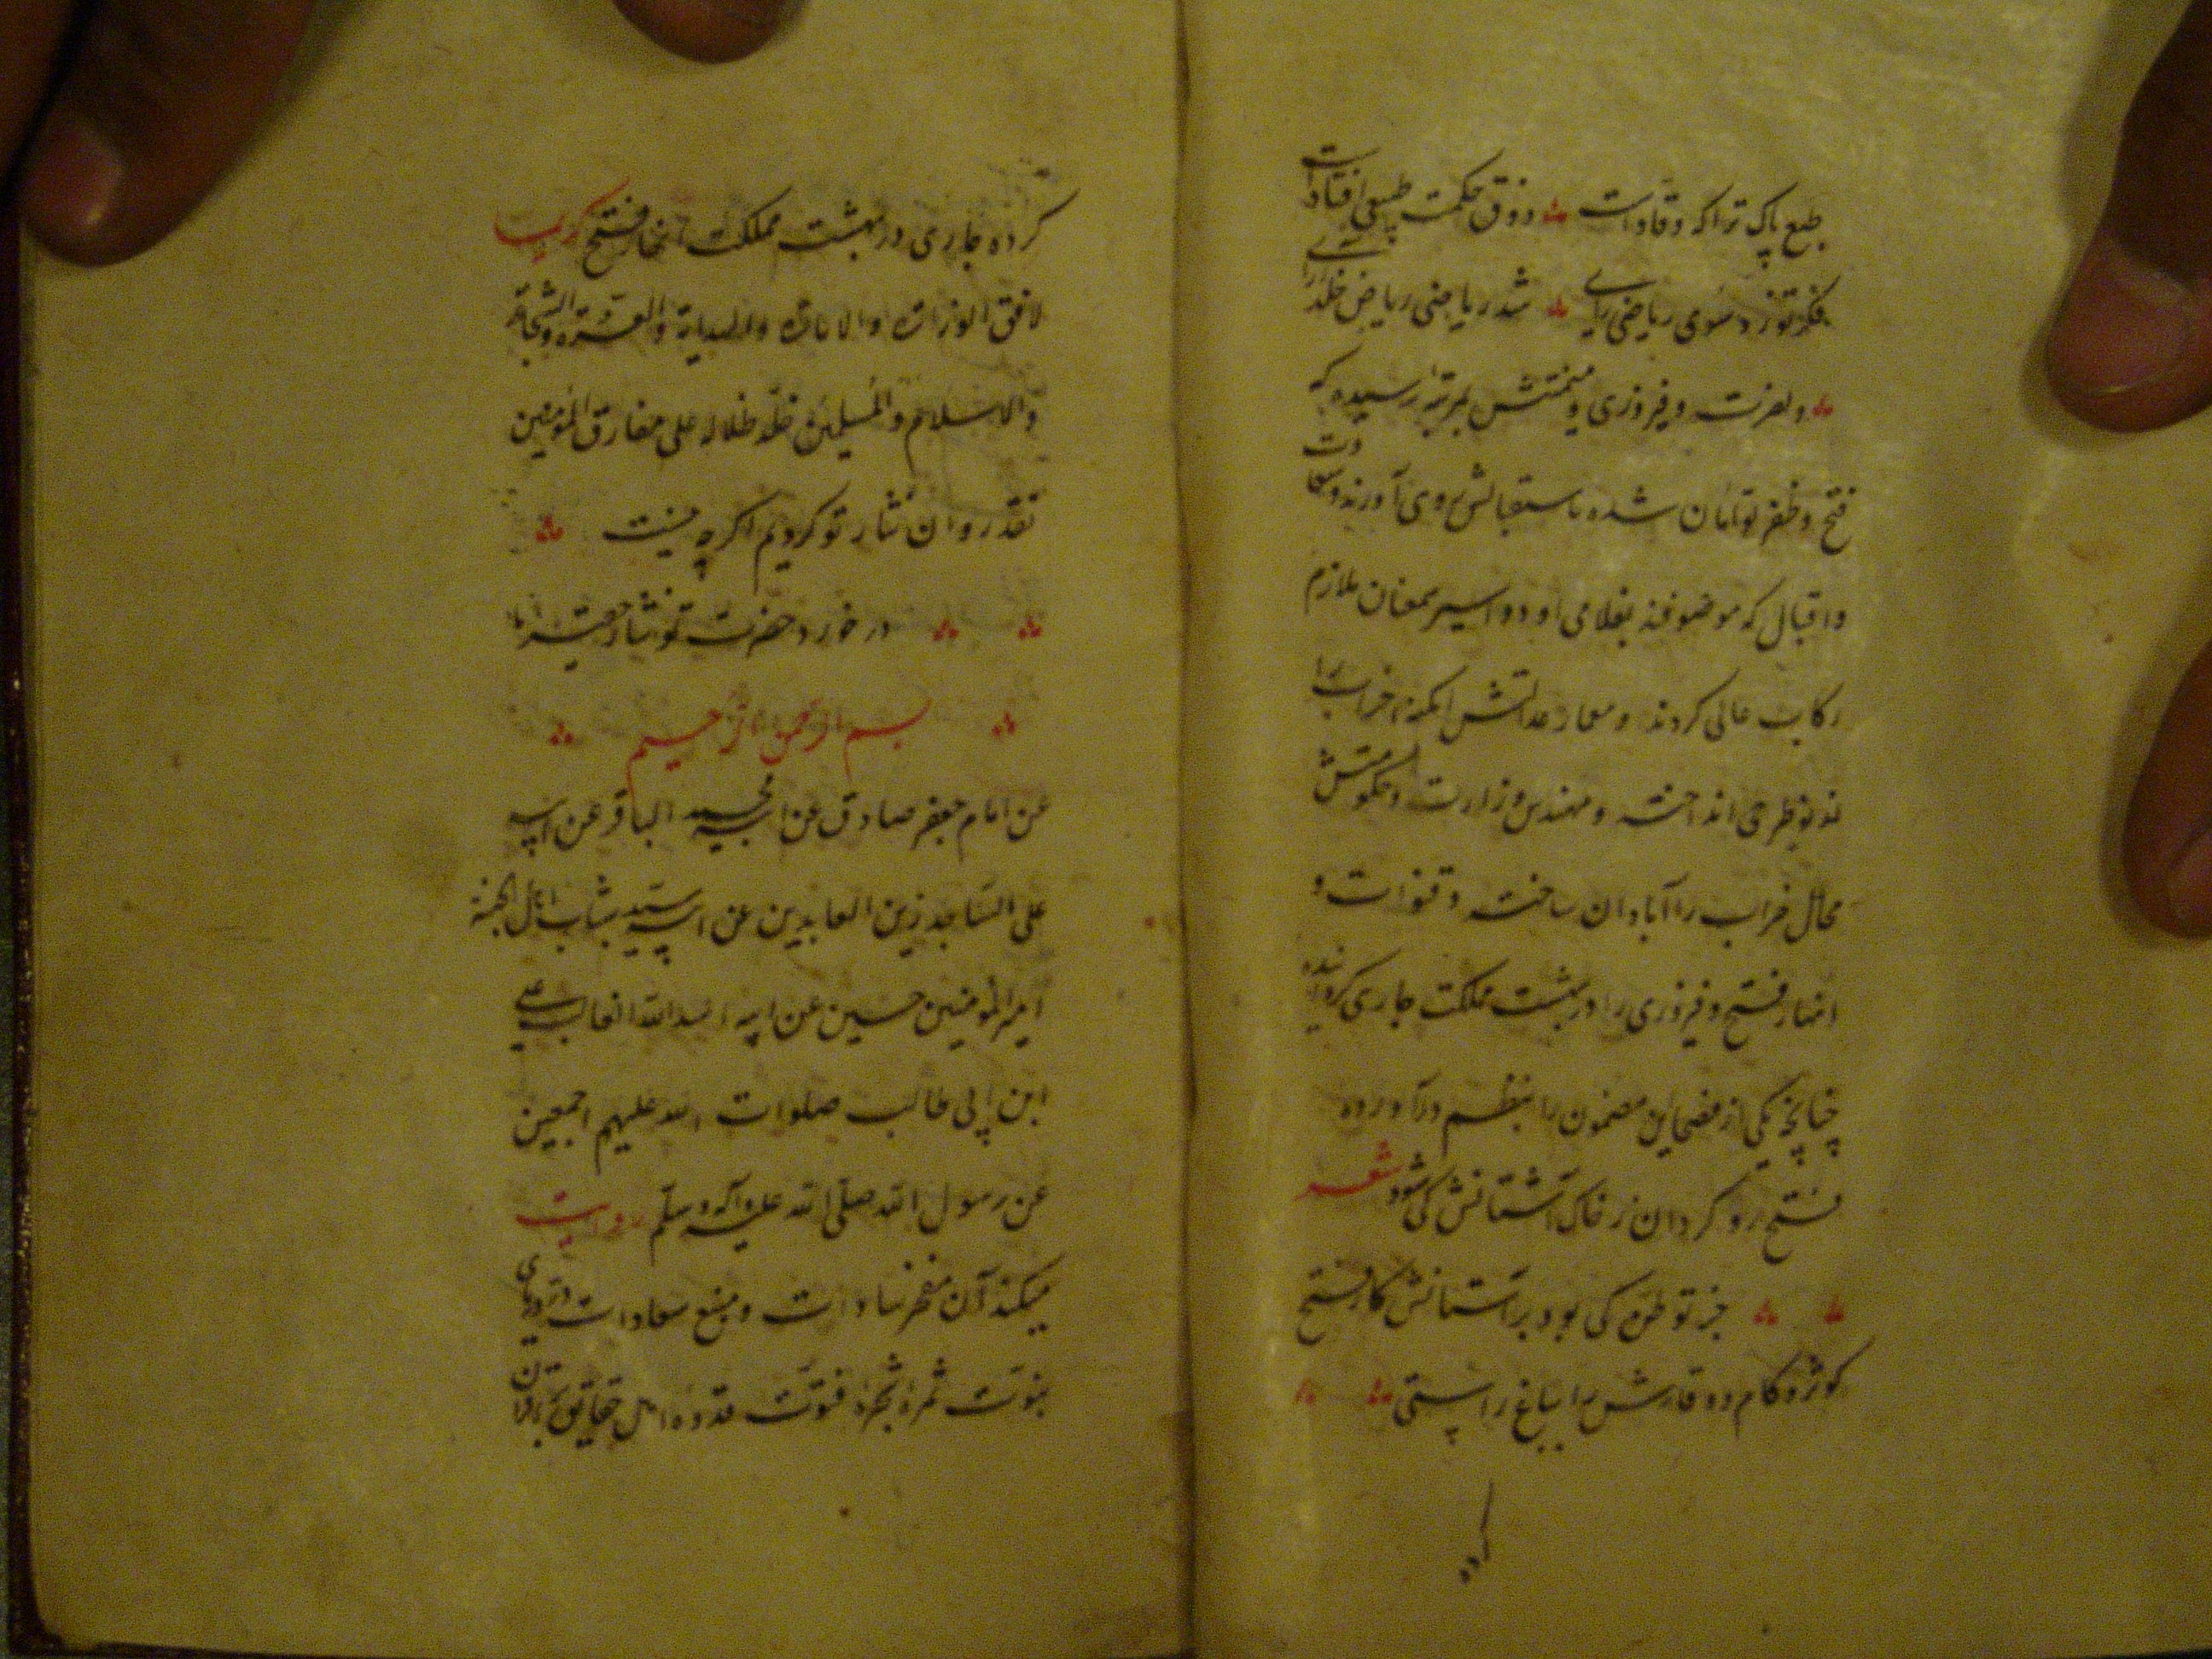 طبع پاک ترا که وقاد است ذوق حکمت طبیعی افتاد است
فکر تو زد سوی ریاضی رای شد ریاضی ریاض خلد آرای
و نصرت و فیروزی و میمنتش بمرتبه رسیده که
فتح و ظفر توامان شده باستقبالش روی آورند و سعادت
و اقبال که موصوفند بغلامی او دو اسپه عنان ملازم
رکاب عالی کردند و معمار عدالتش اکرم خراب را
نو بنو طرحی انداخته و مهندس وزارت و حکومتش
محال خراب را آبادان ساخته و قنوات و
انهار فتح و فیروزی را در بهشت مملکت جاری گردانیده
چنانچه یکی از فصحا این مضمون را بنظم درآورده شعر
فتح رو گردان ز خاک آستانش کی شود
جز توطن کی بود بر آستانش کار فتح
کوثر و کام دو قارش را بباغ راستی
کرده
کرده جاری در بهشت مملکت انهار فتح
لافق الوزارة و الایالة و السیادة و العزة و الشجاعة
و الاسلام و المسلمین خلد ظلاله علی مفارق المؤمنین
نقد روان نثار تو کردیم اگرچه نیست
در خورد حضرت تو نثار حقیر ما
بسم الله الرحمن الرحیم
عن امام جعفر صادق عن ابیه محمد الباقر عن ابیه
علی الساجد زین العابدین عن ابیه سید شباب اهل الجنة
امیر المؤمنین حسین عن ابیه اسد الله الغالب علی
ابن ابی طالب صلوات الله علیهم اجمعین
عن رسول الله صلی الله علیه و آله و سلم روایت
میکند آن مفخر سادات و منبع سعادات در دریای
نبوت ثمره شجره فتوت قدوه اهل حقایق